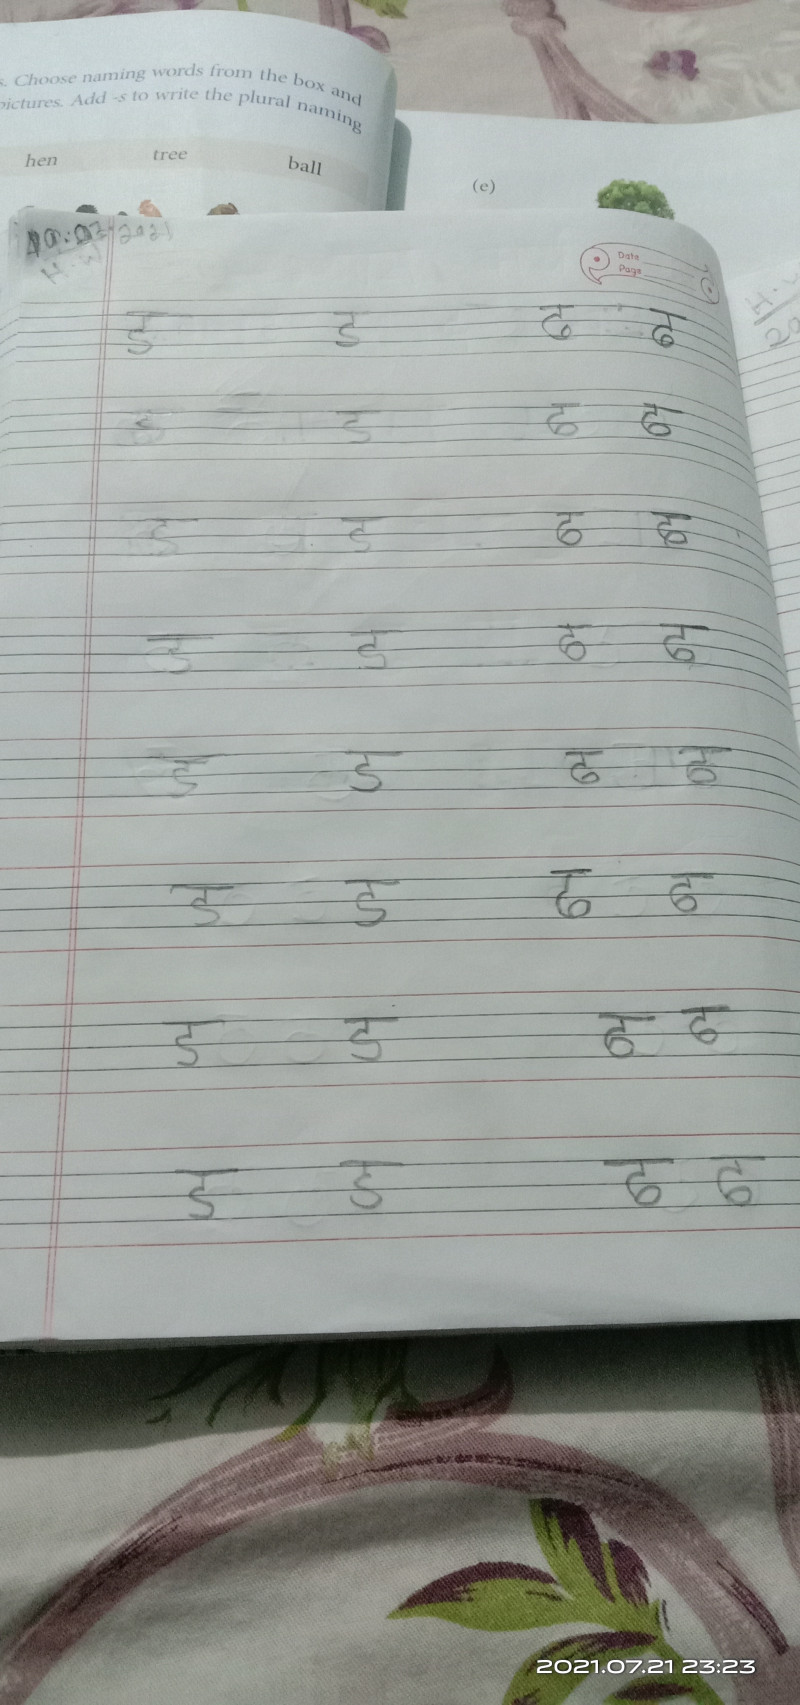 s. Choose naming words from the box and
pictures. Add -s to write the plural naming
hen tree ball
(e)
H.W
Date
Page
ड ड ढ ढ
ड ड ढ ढ
ड ड ढ ढ
ड ड ढ ढ
ड ड ढ ढ
ड ड ढ ढ
ड ड ढ ढ
ड ड ढ ढ
2021.07.21 23:23